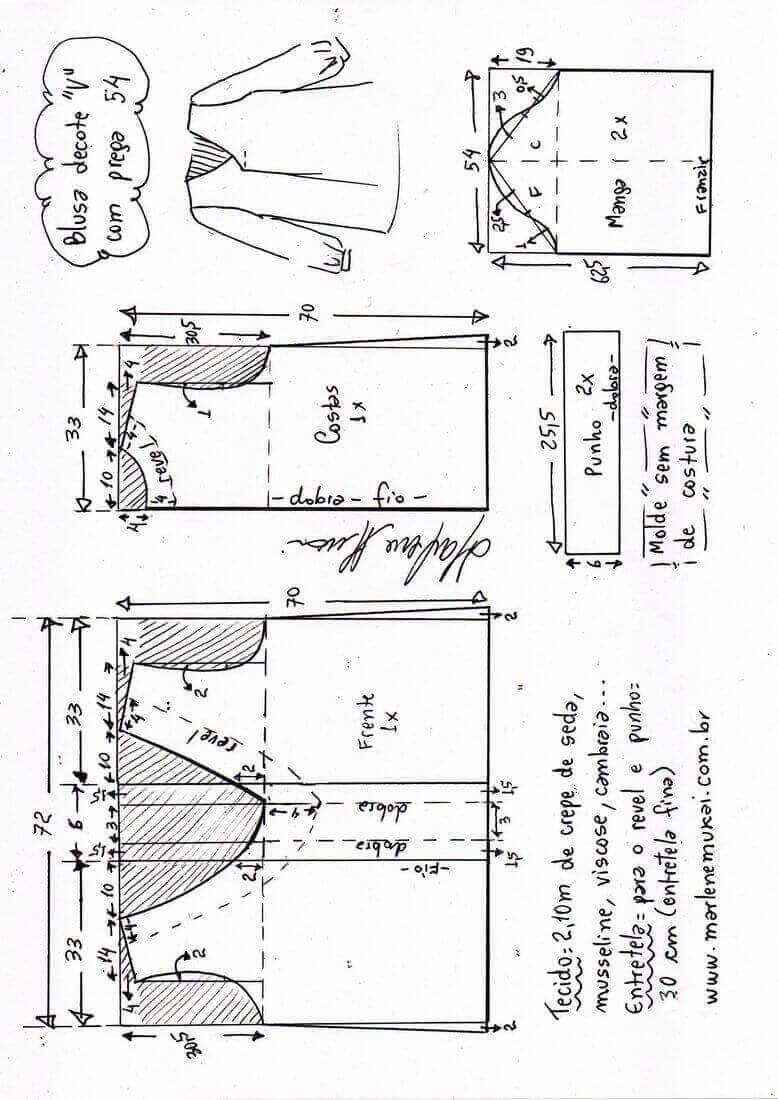 Blusa decote "V"
com prega 54
72
33
6
33
14
10
1,5
3
1,5
10
14
4
4
4
4
30,5
2
2
2
2
revel
4
70
Frente
1x
-fio-
dobra
dobra
2
1,5
3
1,5
2
33
10
14
4
4
4
4
revel
1
30,5
70
Costas
1x
-fio- dobra-
2
54
19
1
2,5
3
0,5
F
C
62,5
Manga 2x
Franzir
25,5
6
Punho 2x
-dobra-
Molde sem margem
de costura
Tecido= 2,10m de crepe de seda,
musseline, viscose, cambraia...
Entretela= para o revel e punho=
30 cm (entretela fina)
www.marlenemukai.com.br